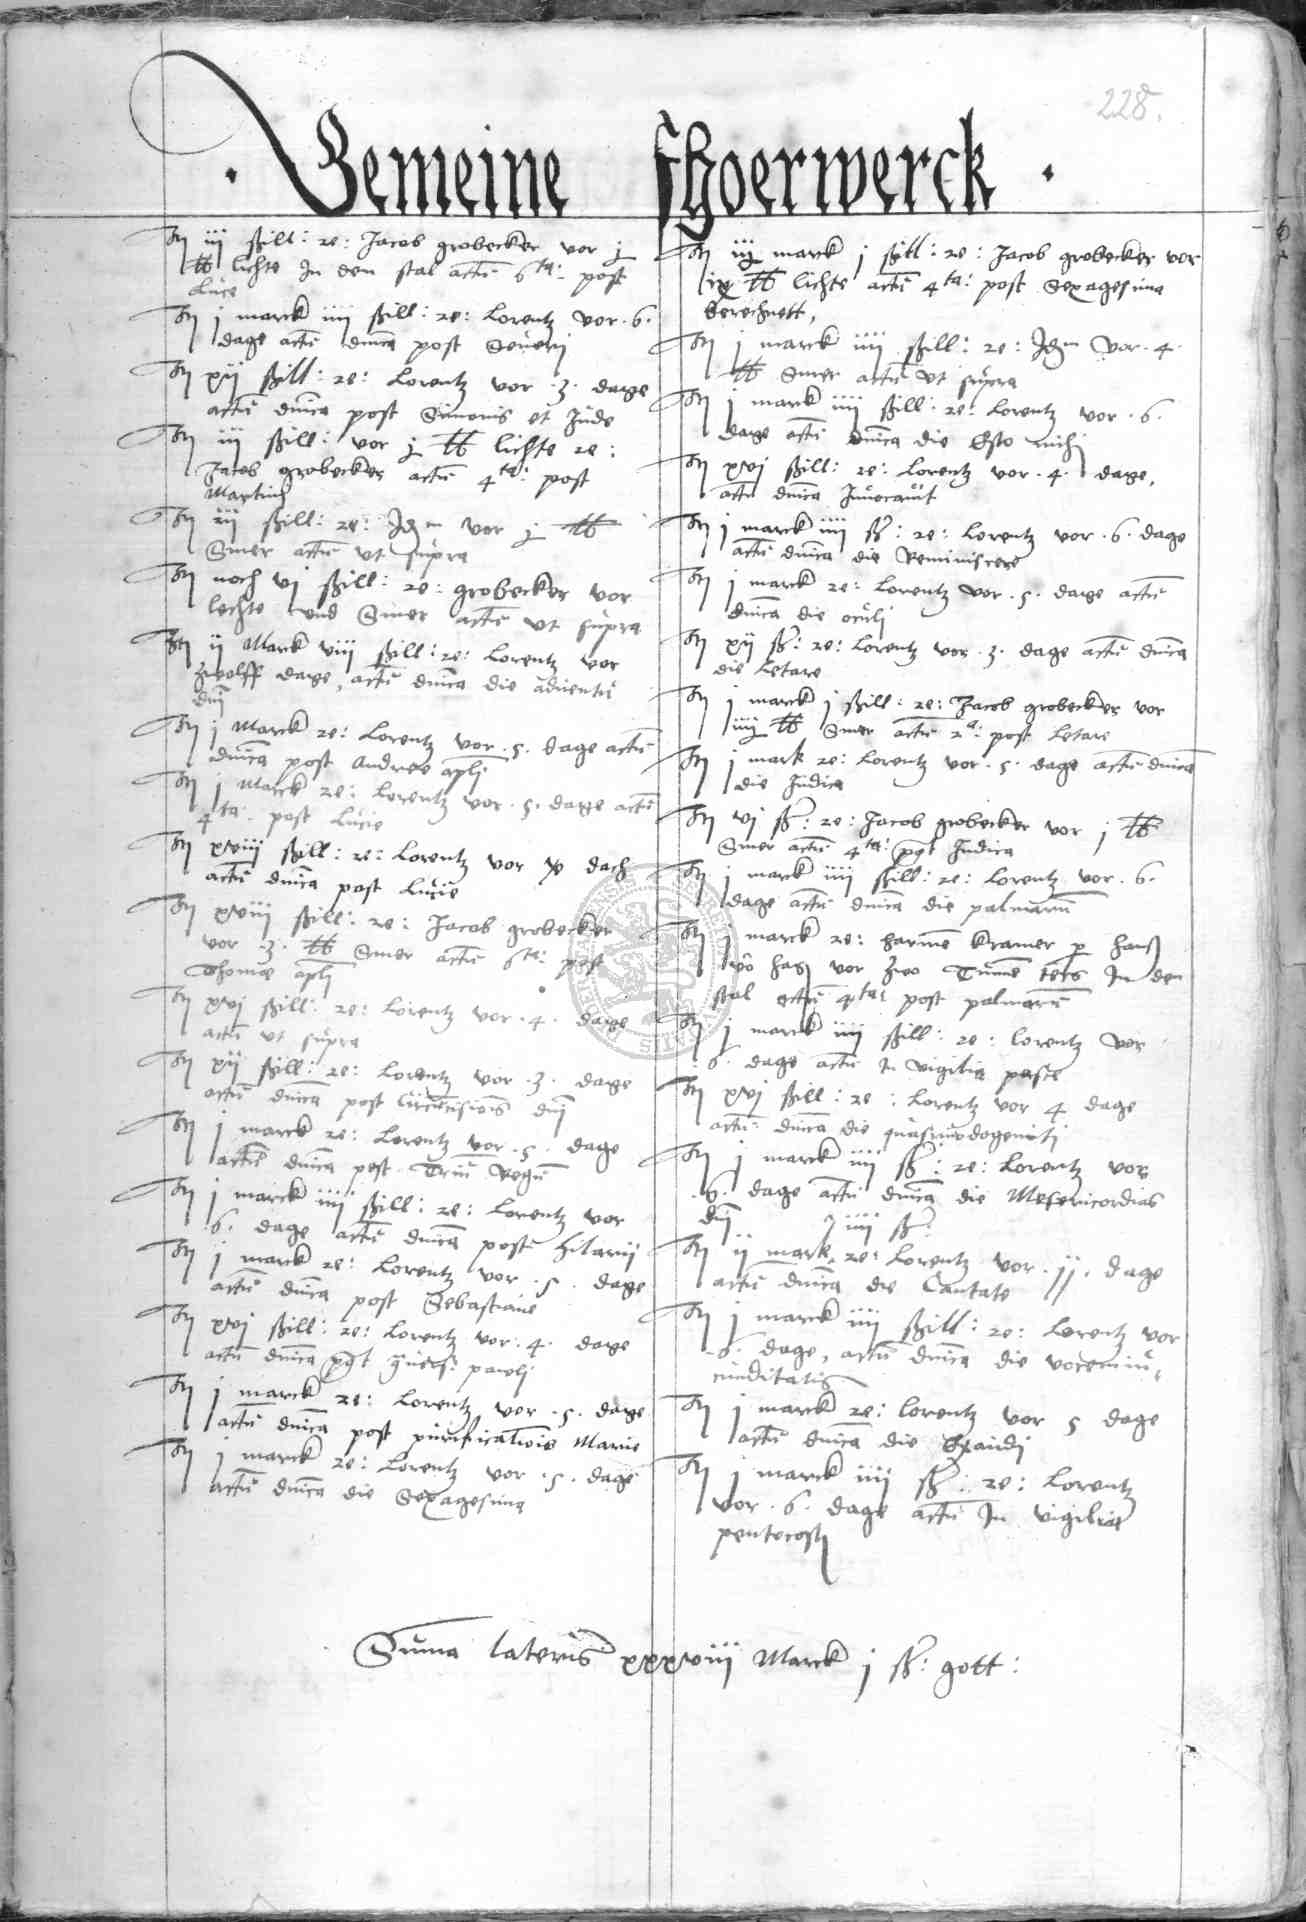 228.
· Gemeine fhoerwerck ·
Itj iij ßill: re: Jacob grobecker vor j
℔ lichte In den stal actū 6ta: post
Luce
Itj j marck iiij ßill: re: Lorentz vor .6.
dage actū dnīca post Seuerij
Itj xij ßill: re: Lorentz vor .3. dage
actū dnīca post Simonis et Jude
Itj iij ßill: vor j ℔ lichte re:
Jacob grobecker actū 4ta: post
Martinj
Itj iij ßill: re: Idem vor j ℔
Smer actū vt supra
Itj noch vj ßill: re: grobecker vor
lechte vnd Smer actū vt supra
Itj ij Marck viij ßill: re: Lorentz vor
zwolff dage, actū dnīca die aduentū
dnī
Itj j Marck re: Lorentz vor .5. dage actū
dnīca post Andree aplī
Itj j Marck re: Lorentz vor .5. dage actū
4ta: post Lucie
Itj xviij ßill: re: Lorentz vor v dach
actū dnīca post Lucie
Itj xviij ßill: re: Jacob grobecker
vor .3. ℔ Smer actū 6ta: post
Thome aplī
Itj xvj ßill: re: Lorentz vor .4. dage
actū vt supra
Itj xij ßill: re: Lorentz vor .3. dage
actū dnīca post Circūcisiōis dnī
Itj j marck re: Lorentz vor .5. dage
actū dnīca post Triū Regū
Itj j marck iiij ßill: re: Lorentz vor
.6. dage actū dnīca post hilarij
Itj j marck re: Lorentz vor .5. dage
actū dnīca post Sebastiane
Itj xvj ßill: re: Lorentz vor .4. dage
actū dnīca post ɔuers: pawlj
Itj j marck re: Lorentz vor .5. dage
actū dnīca post purificatiōis Marie
Itj j marck re: Lorentz vor .5. dage
actū dnīca die Sexagesima
Itj iij marck j ßill: re: Jacob grobecker vor
ix ℔ lichte actū 4ta: post Sexagesima
berechnett,
Itj j marck iiij ßill: re: Idem vor .4.
℔ Smer actū vt supra
Itj j marck iiij ßill: re: Lorentz vor .6.
dage actū dnīca die Esto michj
Itj xvj ßill: re: Lorentz vor .4. dage,
actū dnīca Inuocauit
Itj j marck iiij ß: re: Lorentz vor .6. dage
actū dnīca die Reminiscere
Itj j marck re: Lorentz vor .5. dage actū
dnīca die oculj
Itj xij ß: re: Lorentz vor .3. dage actū dnīca
die Letare
Itj j marck j ßill: re: Jacob grobecker vor
iiij ℔ Smer actū 2a: post Letare
Itj j mark re: Lorentz vor .5. dage actū dnīca
die Judica
Itj vj ß: re: Jacob grobecker vor j ℔
Smer actū 4ta: post Judica
Itj j marck iiij ßill: re: Lorentz vor .6.
dage actū dnīca die palmarū
Itj j marck re: harmē Kramer hans
vor zwo Tunne In den
stal actū 4ta: post palmarū
Itj j marck iiij ßill: re: Lorentz vor
.6. dage actū In vigilia pasce
Itj xvj ßill: re: Lorentz vor 4 dage
actū dnīca die quasimodogenitj
Itj j marck iiij ß: re: Lorentz vor
.6. dage actū dnīca die Mesericordias
dnī
iiij ß:
Itj ij mark re: Lorentz vor .11. dage
actū dnīca die Cantate
Itj j marck iiij ßill: re: Lorentz vor
.6. dage, actū dnīca die vocem iu-
cunditatis
Itj j marck re: Lorentz vor 5 dage
actū dnīca die Exaudj
Itj j marck iiij ß: re: Lorentz
vor .6. dage actū In vigilia
pentecostj
Suma lateris xxxviij Marck j ß: gott: